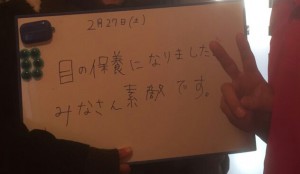 2月27日(土)
目の保養になりました
みなさん素敵です。